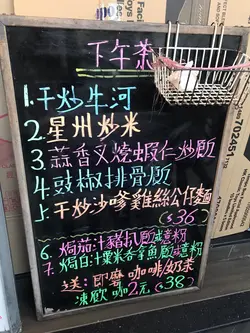 下午茶
1.干炒牛河
2.星州炒米
3.蒜香叉燒蝦仁炒飯
4.豉椒排骨飯
上.干炒沙嗲雞絲公仔麵
($36)
6.焗茄汁豬扒飯或意粉
7.焗白汁粟米吞拿魚飯或意粉
送:即磨咖啡/奶茶
凍飲加2元 ($38)